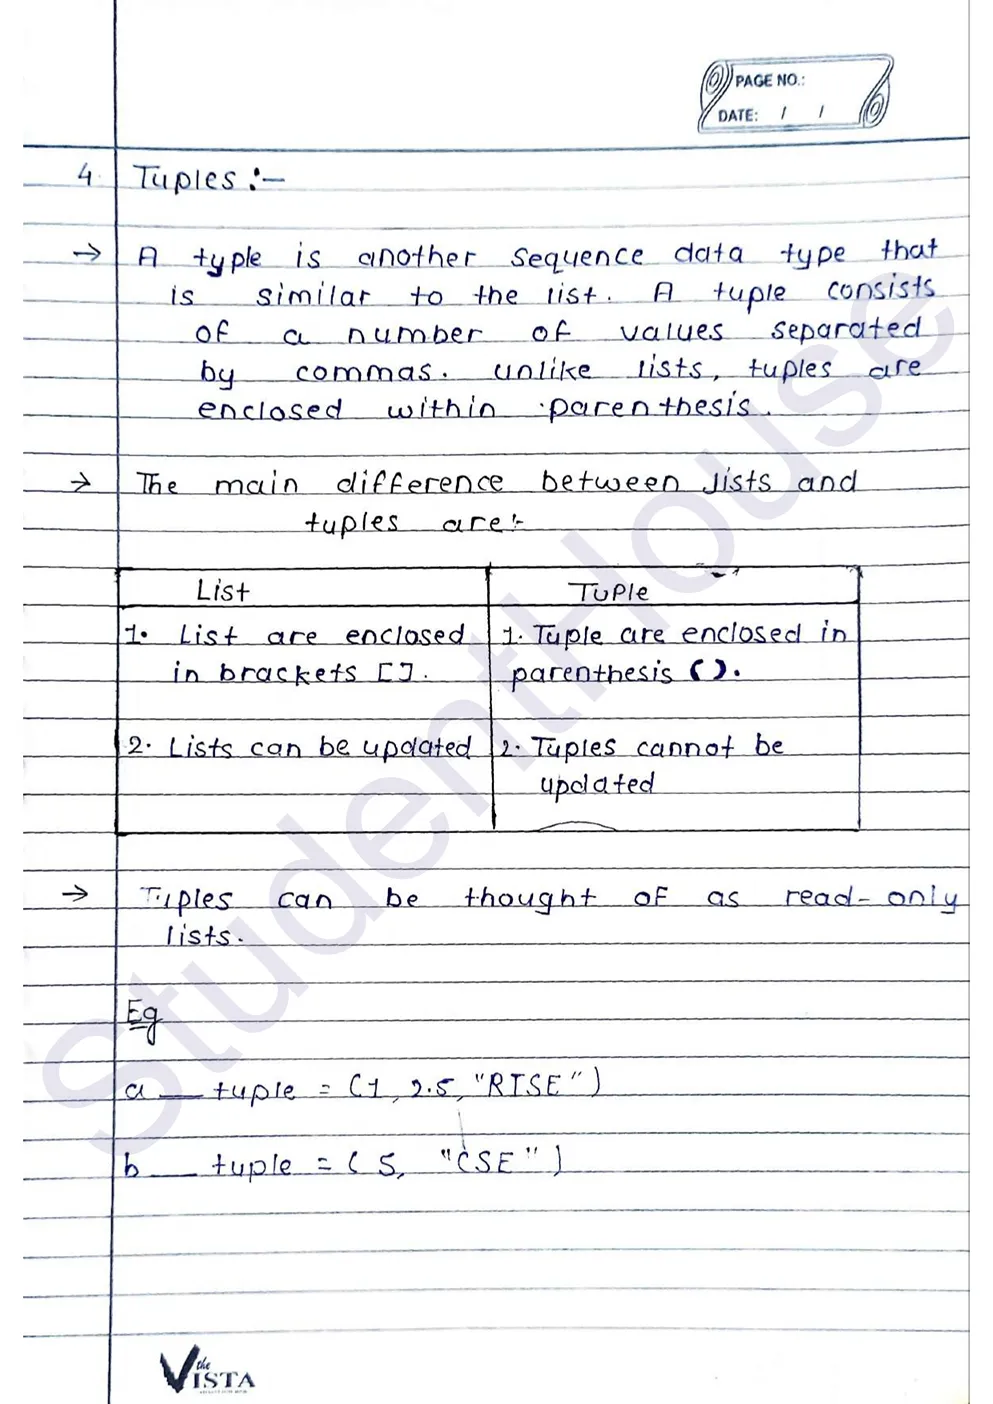 PAGE NO.:
DATE: / /
4. Tuples :-
→ A typle is another sequence data type that
is similar to the list. A tuple consists
of a number of values separated
by commas. unlike lists, tuples are
enclosed within parenthesis.
→ The main difference between lists and
tuples are:-
List Tuple
1. List are enclosed 1. Tuple are enclosed in
in brackets []. parenthesis ().
2. Lists can be updated 2. Tuples cannot be
updated
→ Tuples can be thought of as read-only
lists.
Eg
a __ tuple = (1, 2.5, "RISE")
b __ tuple = ( 5, "CSE" )
the
VISTA
StudentHouse